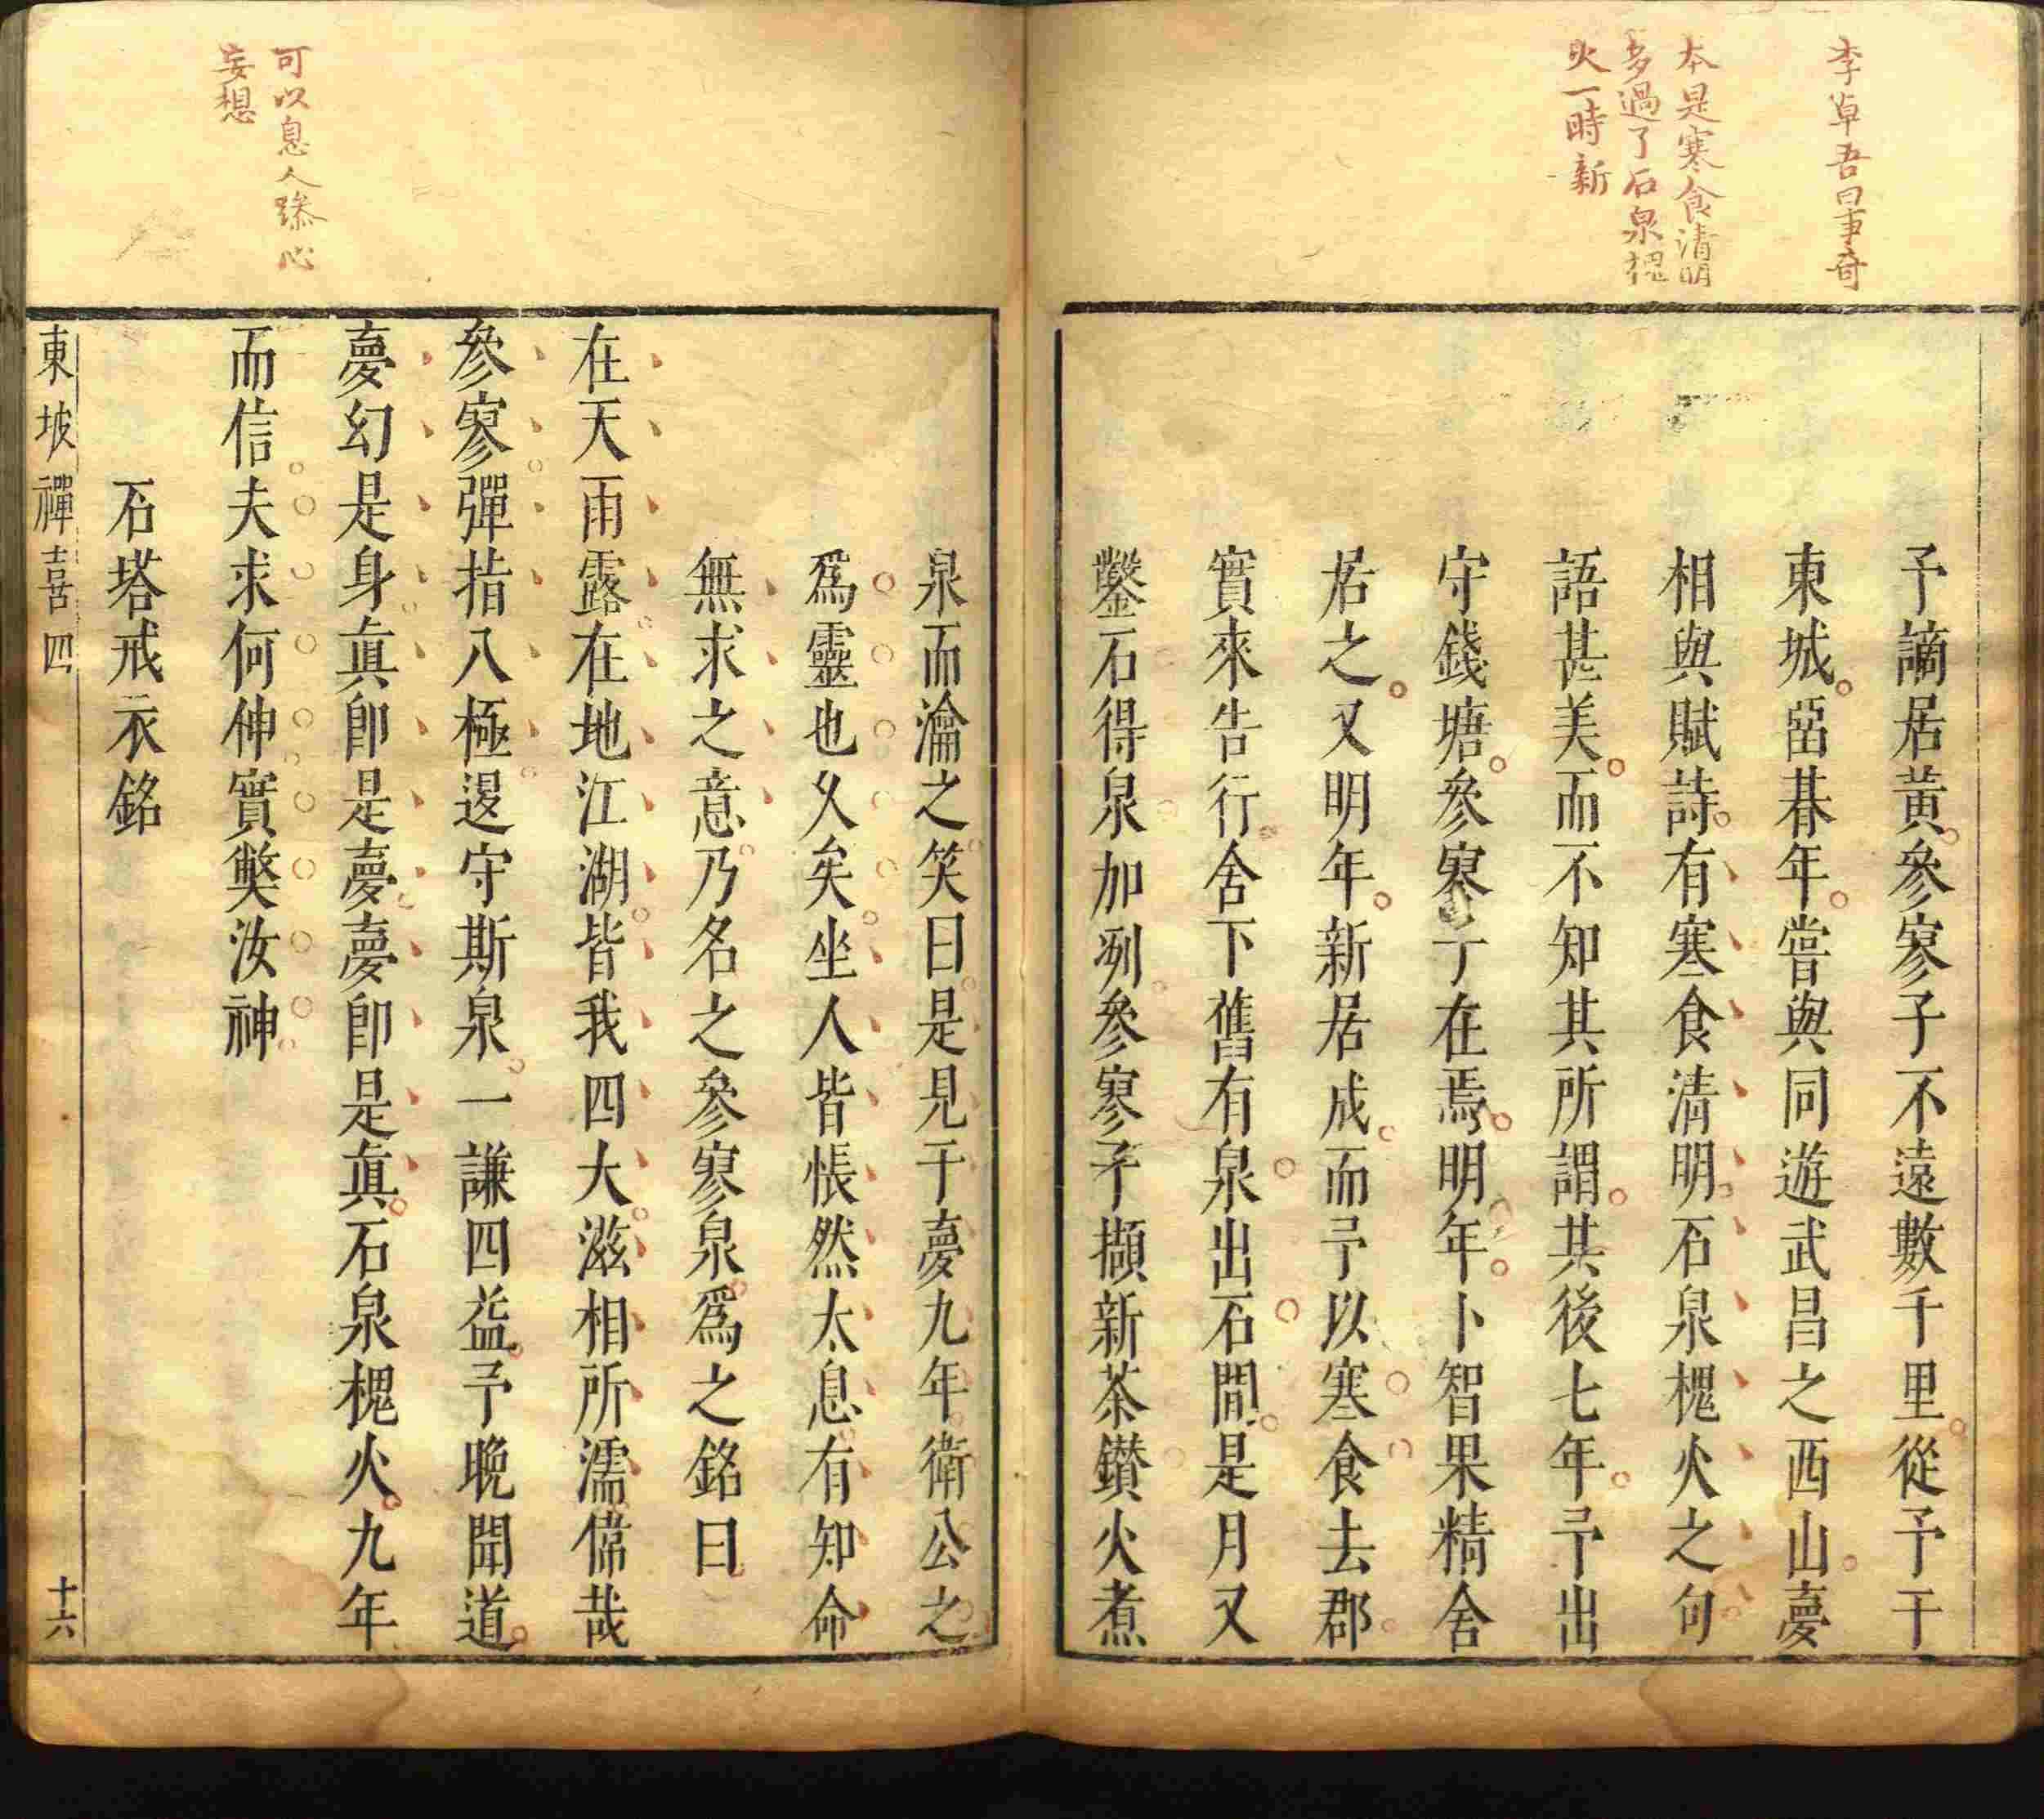 李卓吾曰事奇
本是寒食清明
多過了石泉槐
火一時新
予謫居黄參寥子不遠數千里從予于
東城畱朞年嘗與同遊武昌之西山夢
相與賦詩有寒食清明石泉槐火之句
語甚美而不知其所謂其後七年予出
守錢塘參寥子在焉明年卜智果精舍
居之又明年新居成而予以寒食去郡
實來告行舍下舊有泉出石間是月又
鑿石得泉加冽參寥子擷新茶鑚火煮
泉而瀹之笑曰是見于夢九年衛公之
爲靈也久矣坐人皆悵然太息有知命
無求之意乃名之參寥泉爲之銘曰
可以息人躁心
妄想
在天雨露在地江湖皆我四大滋相所濡偉哉
參寥彈指八極退守斯泉一謙四益予晚聞道
夢幻是身真卽是夢夢卽是真石泉槐火九年
而信夫求何伸實獘汝神
石塔戒衣銘
東坡禪喜四
十六